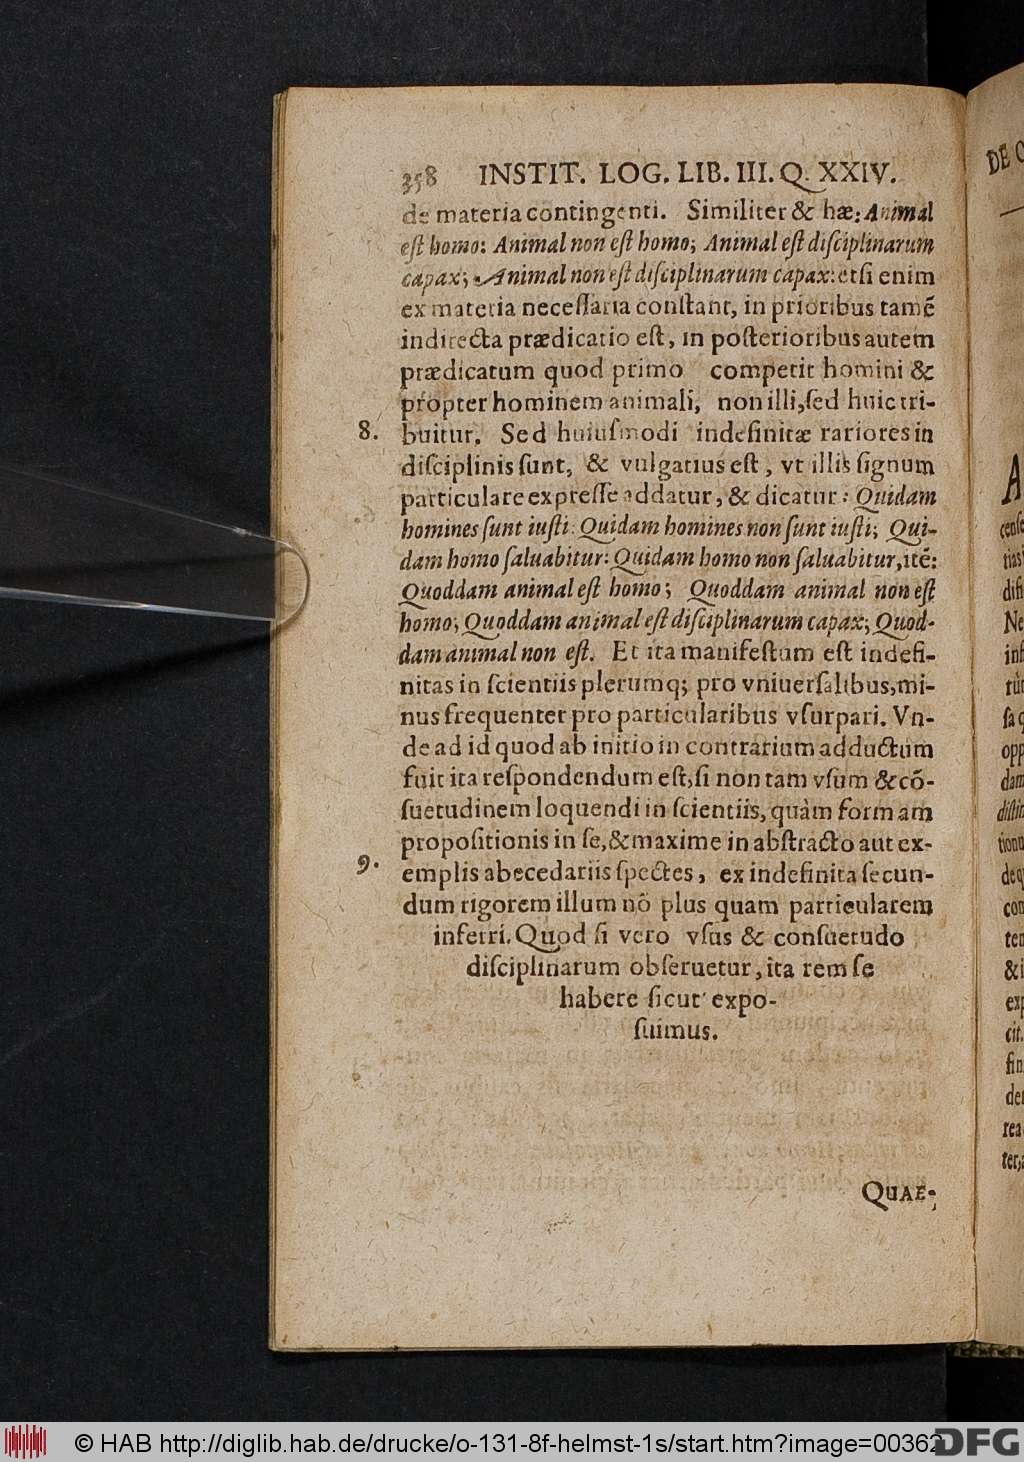 358 INSTIT. LOG. LIB. III. Q. XXIV.
de materia contingenti. Similiter & hæ: Animal
eſt homo: Animal non eſt homo; Animal eſt diſciplinarum
capax; Animal non eſt diſciplinarum capax: etſi enim
ex materia neceſſaria conſtant, in prioribus tamẽ
indirecta prædicatio eſt, in poſterioribus autem
prædicatum quod primo competit homini &
propter hominem animali, non illi, ſed huic tri-
8. buitur. Sed huiuſmodi indefinitæ rariores in
diſciplinis ſunt, & vulgatius eſt, vt illis ſignum
particulare expreſſe addatur, & dicatur: Quidam
homines ſunt iuſti: Quidam homines non ſunt iuſti; Qui-
dam homo ſaluabitur: Quidam homo non ſaluabitur, itẽ:
Quoddam animal eſt homo; Quoddam animal non eſt
homo; Quoddam animal eſt diſciplinarum capax; Quod-
dam animal non eſt. Et ita manifeſtum eſt indefi-
nitas in ſcientiis plerumq; pro vniuerſalibus, mi-
nus frequenter pro particularibus vſurpari. Vn-
de ad id quod ab initio in contrarium adductum
fuit ita reſpondendum eſt, ſi non tam vſum & cõ-
ſuetudinem loquendi in ſcientiis, quàm formam
propoſitionis in ſe, & maxime in abſtracto aut ex-
9. emplis abecedariis ſpectes, ex indefinita ſecun-
dum rigorem illum nõ plus quam particularem
inferri. Quod ſi vero vſus & conſuetudo
diſciplinarum obſeruetur, ita rem ſe
habere ſicut expo-
ſuimus.
QUAE-
DE C
A
cenſe
tias
difi
Ne
inf
rũt
ſa q
opp
dam
diſtin
tionu
de q
con
ten
& i
exp
cit.
fin
der
rea
ter, a
© HAB http://diglib.hab.de/drucke/o-131-8f-helmst-1s/start.htm?image=00362
DFG